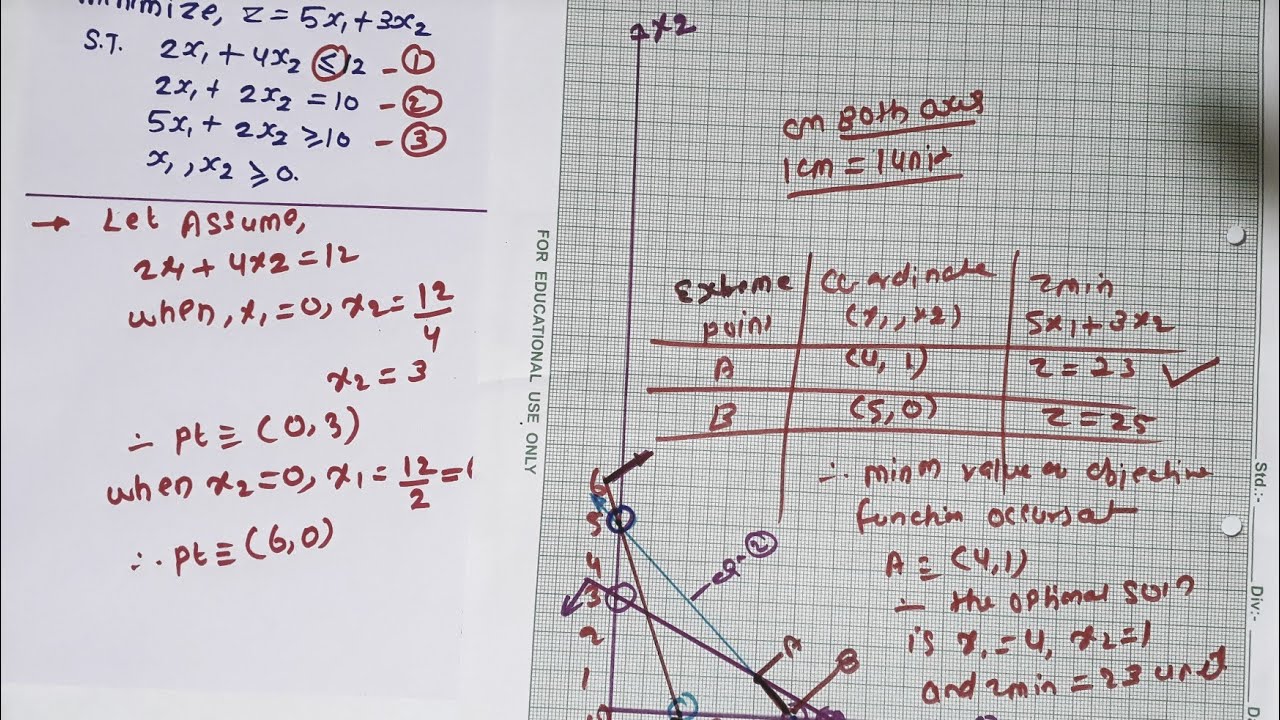 Minimize, Z = 5x₁ + 3x₂
S.T. 2x₁ + 4x₂ ≤ 12 - ①
2x₁ + 2x₂ = 10 - ②
5x₁ + 2x₂ ≥ 10 - ③
x₁, x₂ ≥ 0.
→ Let Assume,
2x₁ + 4x2 = 12
when, x₁ = 0, x₂ = 12/4
x₂ = 3
∴ pt ≡ (0,3)
when x₂ = 0, x₁ = 12/2 =
∴ pt ≡ (6,0)
FOR EDUCATIONAL USE ONLY
x2
on Both axis
1cm = 1unit
Extreme point | Co ordinate (x₁, x2) | Zmin 5x₁ + 3x2
A | (4, 1) | Z = 23 ✓
B | (5, 0) | Z = 25
∴ minm value of objective
function occurs at
A ≡ (4,1)
∴ the optimal soln
is x₁ = 4, x₂ = 1
and zmin = 23 unit
6
5
4
3
2
1
②
A
B
Std.:-
Div.:-